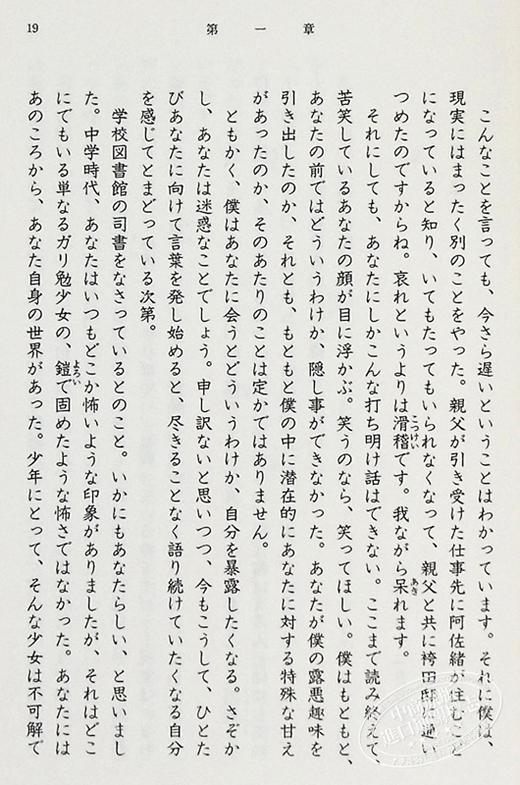 19
第一章
こんなことを言っても、今さら遅いということはわかっています。それに僕は、
現実にはまったく別のことをやった。親父が引き受けた仕事先に阿佐緒が住むこと
になっていると知り、いてもたってもいられなくなって、親父と共に袴田邸に通い
つめたのですからね。哀れというよりは滑稽です。我ながら呆れます。
それにしても、あなたにしかこんな打ち明け話はできない。ここまで読み終えて、
苦笑しているあなたの顔が目に浮かぶ。笑うのなら、笑ってほしい。僕はもともと、
あなたの前ではどういうわけか、隠し事ができなかった。あなたが僕の露悪趣味を
引き出したのか、それとも、もともと僕の中に潜在的にあなたに対する特殊な甘え
があったのか、そのあたりのことは定かではありません。
ともかく、僕はあなたに会うとどういうわけか、自分を暴露したくなる。さぞか
し、あなたは迷惑なことでしょう。申し訳ないと思いつつ、今もこうして、ひとた
びあなたに向けて言葉を発し始めると、尽きることなく語り続けていたくなる自分
を感じてとまどっている次第。
学校図書館の司書をなさっているとのこと。いかにもあなたらしい、と思いまし
た。中学時代、あなたはいつもどこか怖いような印象がありましたが、それはどこ
にでもいる単なるガリ勉少女の、鎧で固めたような怖さではなかった。あなたには
あのころから、あなた自身の世界があった。少年にとって、そんな少女は不可解で